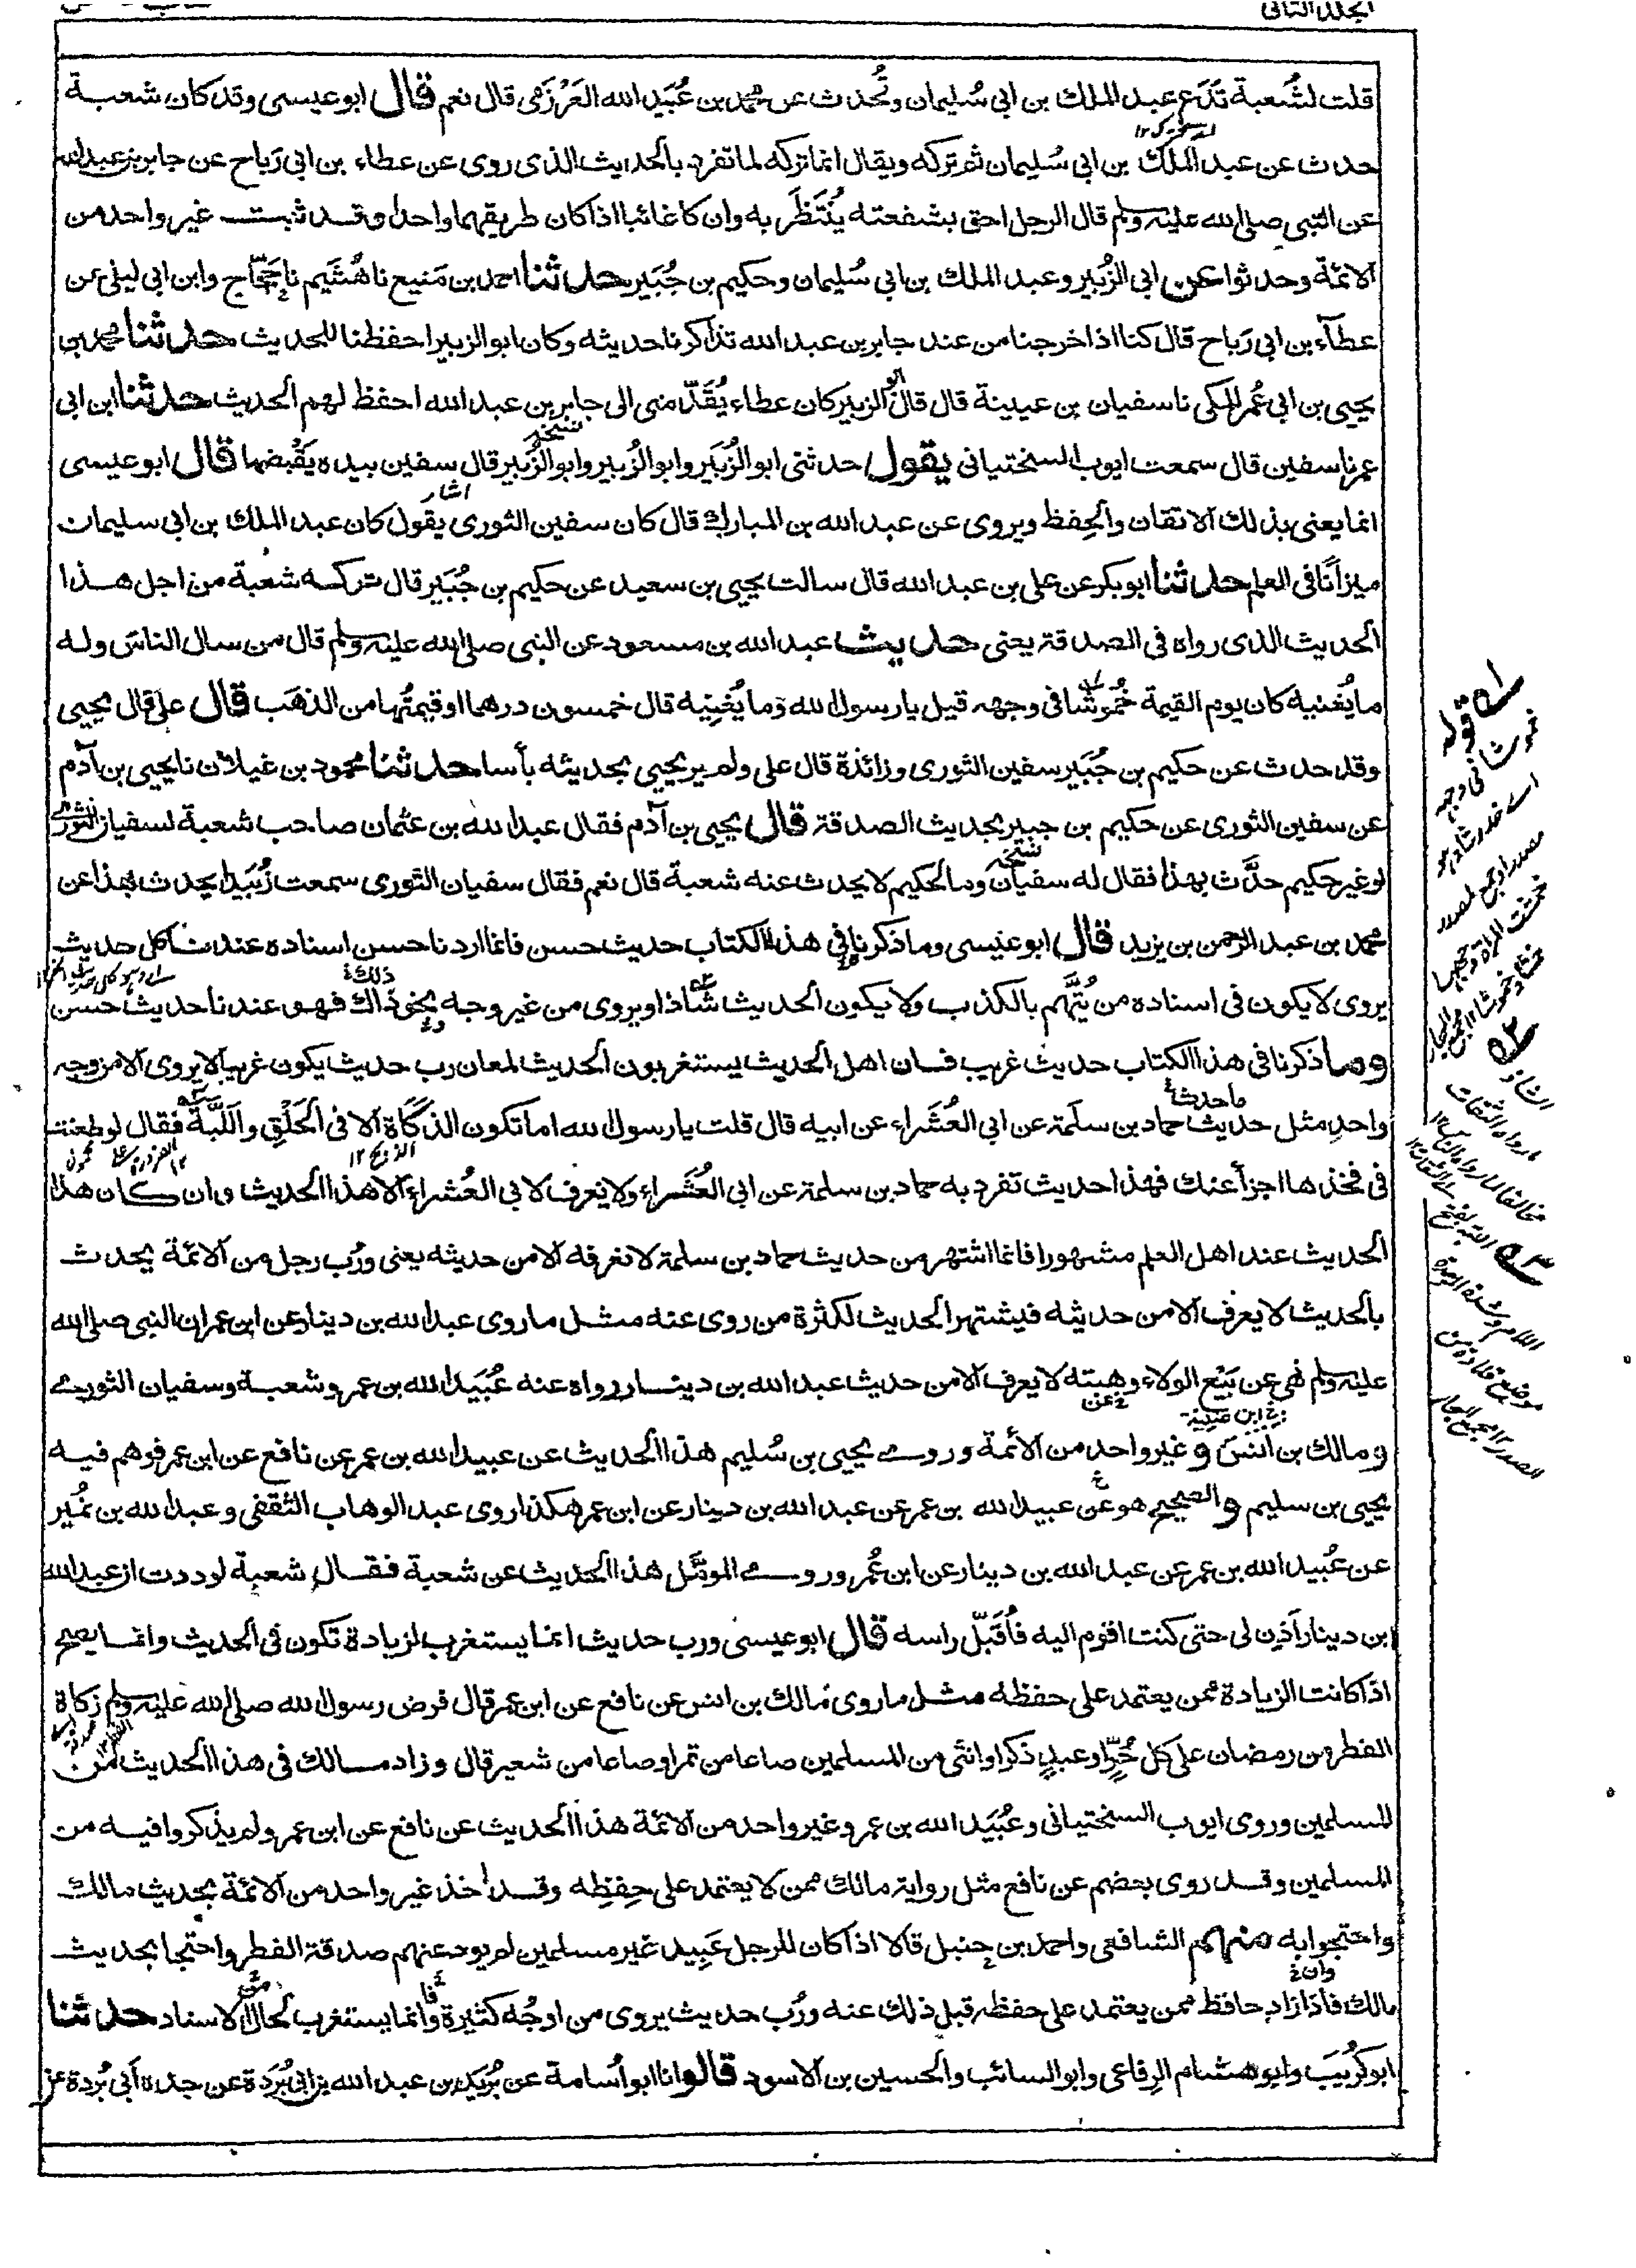 الجلد الثانى
قلت لشُعبة تَدَع عبد الملك بن ابى سُليمان وتُحدث عن محمد بن عُبَيد الله العَرْزَمى قال نعم قال ابو عيسى وقد كان شعبة
حدث عن عبد الملك بن ابى سُليمان ثم تركه ويقال انما تركه لما تفرد بالحديث الذى روى عن عطاء بن ابى رَباح عن جابر بن عبد الله
عن النبى صلى الله عليه وسلم قال الرجل احق بشفعته يُنْتَظَر به وان كا غائبا اذا كان طريقهما واحدا وقد ثبت غير واحد من
الائمة وحدثوا عن ابى الزُبير وعبد الملك بن ابى سُليمان وحكيم بن جُبَير حدثنا احمد بن مَنيع نا هُشَيم نا حَجّاج وابن ابى ليلى عن
عطاء بن ابى رَباح قال كنا اذا خرجنا من عند جابر بن عبد الله تذاكرنا حديثه وكان ابو الزبير احفظنا للحديث حدثنا محمد بن
يحيى بن ابى عُمر المكى نا سفيان بن عيينة قال قال ابو الزبير كان عطاء يُقَدّمنى الى جابر بن عبد الله احفظ لهم الحديث حدثنا ابن ابى
عمر نا سفين قال سمعت ايوب السختيانى يقول حدثنى ابو الزُبَير وابو الزُبير وابو الزُبير قال سفين بيده يَقْبضها قال ابو عيسى
انما يعنى بذلك الاتقان والحِفظ ويروى عن عبد الله بن المبارك قال كان سفين الثورى يقول كان عبد الملك بن ابى سليمان
ميزانًا فى العلم حدثنا ابو بكر عن على بن عبد الله قال سالت يحيى بن سعيد عن حكيم بن جُبَير قال تركه شعبة من اجل هذا
الحديث الذى رواه فى الصدقة يعنى حديث عبد الله بن مسعود عن النبى صلى الله عليه وسلم قال من سال الناس وله
ما يُغنيه كان يوم القيمة خُمُوشًا فى وجهه قيل يا رسول الله وَما يُغنِيه قال خمسون درهما او قيمتُها من الذهَب قال على قال يحيى
وقد حدث عن حكيم بن جُبَير سفين الثورى وزائدة قال على ولم ير يحيى بحديثه بأسا حدثنا محمود بن غيلان نا يحيى بن آدم
عن سفين الثورى عن حكيم بن جبير بحديث الصدقة قال يحيى بن آدم فقال عبد الله بن عثمان صاحب شعبة لسفيان الثورى
لو غير حكيم حدَّث بهذا فقال له سفيان وما لحكيم لا يحدث عنه شعبة قال نعم فقال سفيان الثورى سمعت زُبَيدا يحدث بهذا عن
محمد بن عبد الرحمن بن يزيد قال ابو عيسى وما ذكرنا فى هذا الكتاب حديث حسن فانما اردنا حسن اسناده عندنا كل حديث
يروى لا يكون فى اسناده من يُتَّهم بالكذب ولا يكون الحديث شاذا ويروى من غير وجه نحو ذاك فهو عندنا حديث حسن
وما ذكرنا فى هذا الكتاب حديث غريب فان اهل الحديث يستغربون الحديث لمعان رب حديث يكون غريبا لا يروى الا من وجه
واحد مثل حديث حماد بن سلمة عن ابى العُشَراء عن ابيه قال قلت يا رسول الله اما تكون الذكَاة الا فى الحَلْقِ واللَبَّة فقال لو طعنت
فى فخذها اجزأ عنك فهذا حديث تفرد به حماد بن سلمة عن ابى العُشَراء ولا يعرف لابى العُشراء الا هذا الحديث وان كان هذا
الحديث عند اهل العلم مشهورا فانما اشتهر من حديث حماد بن سلمة لا نعرفه الا من حديثه يعنى ورُب رجل من الائمة يحدث
بالحديث لا يعرف الا من حديثه فيشتهر الحديث لكثرة من روى عنه مثل ما روى عبد الله بن دينار عن ابن عمر ان النبى صلى الله
عليه وسلم نهى عن بَيْع الولاء وهبته لا يعرف الا من حديث عبد الله بن دينار رواه عنه عُبَيد الله بن عمر وشعبة وسفيان الثورى
ومالك بن انس وغير واحد من الائمة وروى يحيى بن سُليم هذا الحديث عن عبيد الله بن عمر عن نافع عن ابن عمر فوهم فيه
يحيى بن سليم والصحيح هو عن عبيد الله بن عمر عن عبد الله بن دينار عن ابن عمر هكذا روى عبد الوهاب الثقفى وعبد الله بن نمُير
عن عُبيد الله بن عمر عن عبد الله بن دينار عن ابن عُمر وروى المومّل هذا الحديث عن شعبة فقال شعبة لوددت ان عبد الله
ابن دينار اَذِن لى حتى كنت اقوم اليه فاُقَبّل راسه قال ابو عيسى ورب حديث انما يستغرب لزيادة تكون فى الحديث وانما يصح
اذا كانت الزيادة ممن يعتمد على حفظه مثل ما روى مالك بن انس عن نافع عن ابن عمر قال فرض رسول الله صلى الله عليه وسلم زكاة
الفطر من رمضان على كل حُرٍّ او عبدٍ ذكر او انثى من المسلمين صاعا من تمر او صاعا من شعير قال وزاد مالك فى هذا الحديث من
المسلمين وروى ايوب السختيانى وعُبَيد الله بن عمر وغير واحد من الائمة هذا الحديث عن نافع عن ابن عمر ولم يذكروا فيه من
المسلمين وقد روى بعضهم عن نافع مثل رواية مالك ممن لا يعتمد على حِفظِه وقد اخذ غير واحد من الائمة بحديث مالك
واحتجوا به منهم الشافعى واحمد بن حنبل قالا اذا كان للرجل عَبِيد غير مسلمين لم يود عنهم صدقة الفطر واحتجا بحديث
مالك فاذا زاد حافظ ممن يعتمد على حفظه قبل ذلك عنه ورُب حديث يروى من اوجُه كثيرة وانما يستغرب لحال الاسناد حدثنا
ابو كرُيبَ وابو هشام الرِفاعى وابو السائب والحسين بن الاسود قالوا نا ابو اُسامة عن بُرَيد بن عبد الله بن ابى بُردَة عن جده ابى بُردة عن
له قوله
خموشا فى وجهه
اے خدوشا
مصدر او جمع لمصدر
خمشت المرأة وجهها
خمشا وخموشا ١٢ مجمع البحار
٢ه
الشاذ
ما رواه الثقات
مخالفا لما رواه الناس ١٢
٣ه اللبة بفتح
اللام وشدة الموحدة
موضع قلادة من
الصدر ١٢ مجمع البحار